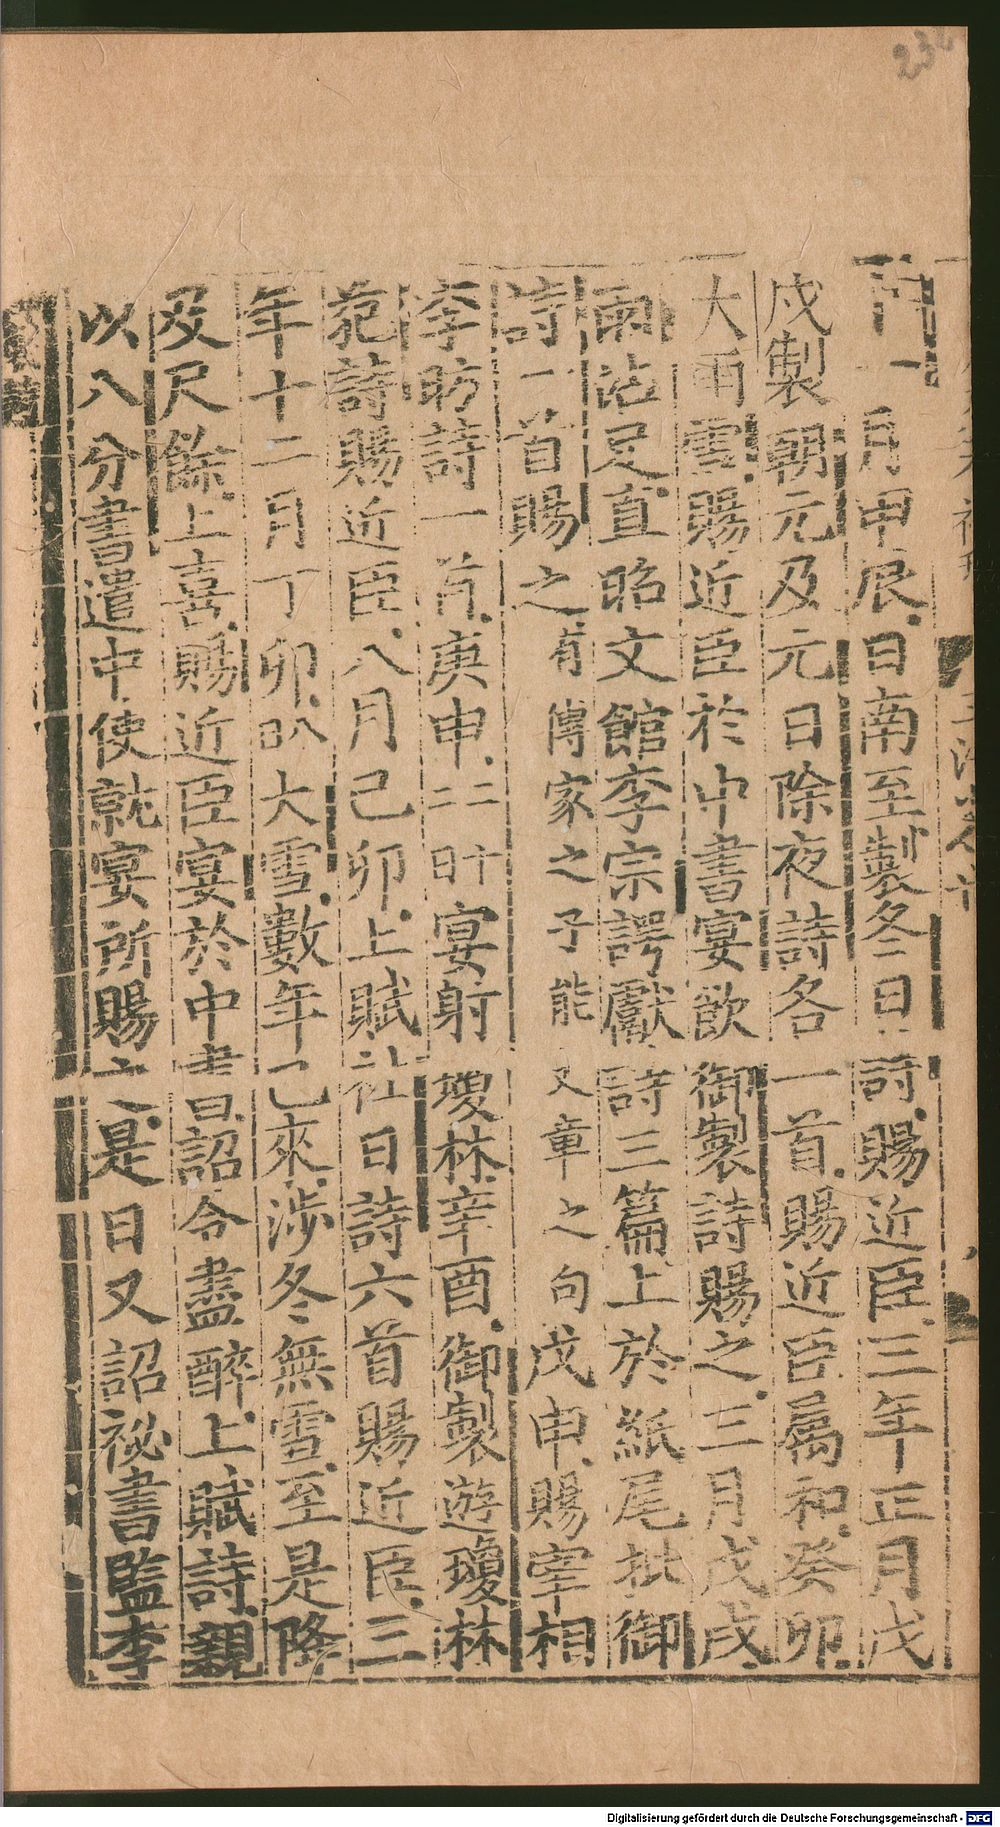 232
十一月甲辰日南至製冬日詩賜近臣三年正月戊
戌製朝元及元日除夜詩各一首賜近臣屬和癸卯
大雨雪賜近臣於中書宴飲御製詩賜之三月戊戌
雨沾足直昭文館李宗諤獻詩三篇上於紙尾批御
詩一首賜之有傳家之子能文章之句戊申賜宰相
李昉詩一首庚申二十二日宴射瓊林辛酉御製遊瓊林
苑詩賜近臣八月己卯上賦社日詩六首賜近臣三
年十二月丁卯八日大雪數年已來涉冬無雪至是降
及尺餘上喜賜近臣宴於中書詔令盡醉上賦詩親
以八分書遣中使就宴所賜之是日又詔祕書監李
Digitalisierung gefördert durch die Deutsche Forschungsgemeinschaft - DFG